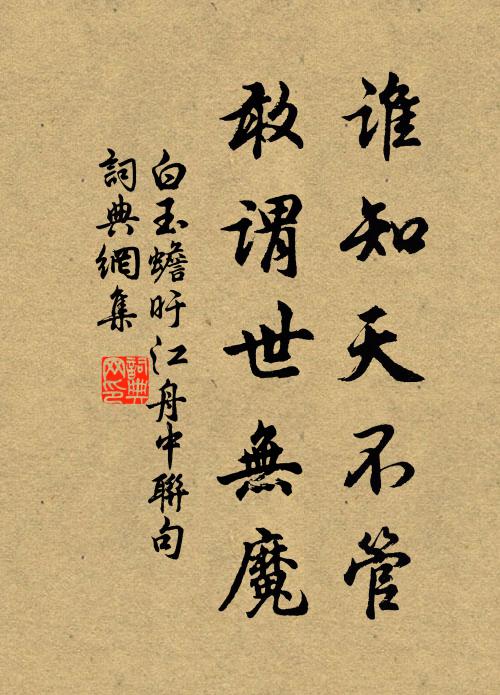 誰知天不管
敢謂世無魔
白玉蟾旴江舟中聯句
詞典網集
詞典
网印